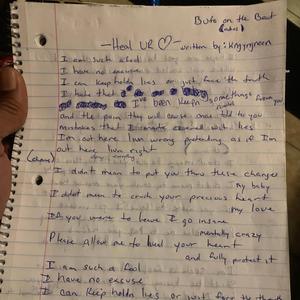 Buts on the Beat
-Heal UR ♡- written by: Kngjngneen
I am such a fool
I have no excuse
I can keep holdn lies or just face the truth
I hate that I've been keepn somethings from you
and the pain they will cause once told to you
mistakes that I covered with lies
I'm out here livn wrong pretending as if I'm
out here livn right
(Chorus)
I didn't mean to put you thru these changes
my baby
I didn't mean to crush your precious heart
my love
If you were to leave I go insane
mentally crazy
Please allow me to heal your heart
and fully protect it
I am such a fool
I have no excuse
I can keep holdn lies or just face the truth